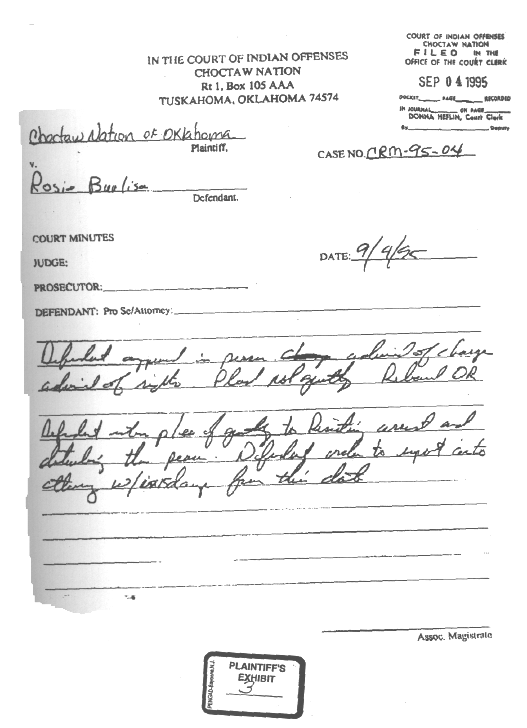 COURT OF INDIAN OFFENSES
CHOCTAW NATION
FILED IN THE
OFFICE OF THE COURT CLERK
SEP 04 1995
DOCKET PAGE RECORDED
IN JOURNAL ON PAGE
DONNA HEFLIN, Court Clerk
By Deputy
IN THE COURT OF INDIAN OFFENSES
CHOCTAW NATION
Rt 1, Box 105 AAA
TUSKAHOMA, OKLAHOMA 74574
Choctaw Nation of Oklahoma
Plaintiff,
v.
CASE NO. CRM-95-04
Rosie Burlison
Defendant.
COURT MINUTES
DATE: 9/4/95
JUDGE:
PROSECUTOR:
DEFENDANT: Pro Se/Attorney:
Defendant appeared in person advised of charge
advised of rights Plead not guilty Released OR
Defendant enters plea of guilty to Resisting arrest and
disturbing the peace. Defendant order to report
attorney w/in days from this date
Assoc. Magistrate
PLAINTIFF'S
EXHIBIT
3